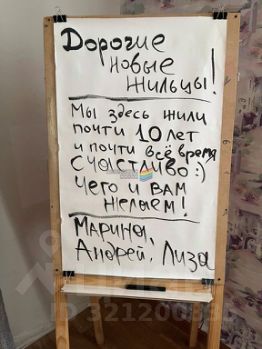 Дорогие
новые
жильцы!
Мы здесь жили
почти 10 лет
и почти всё время
счастливо :)
Чего и вам
желаем!
Марина,
Андрей, Лиза
ID 321200331